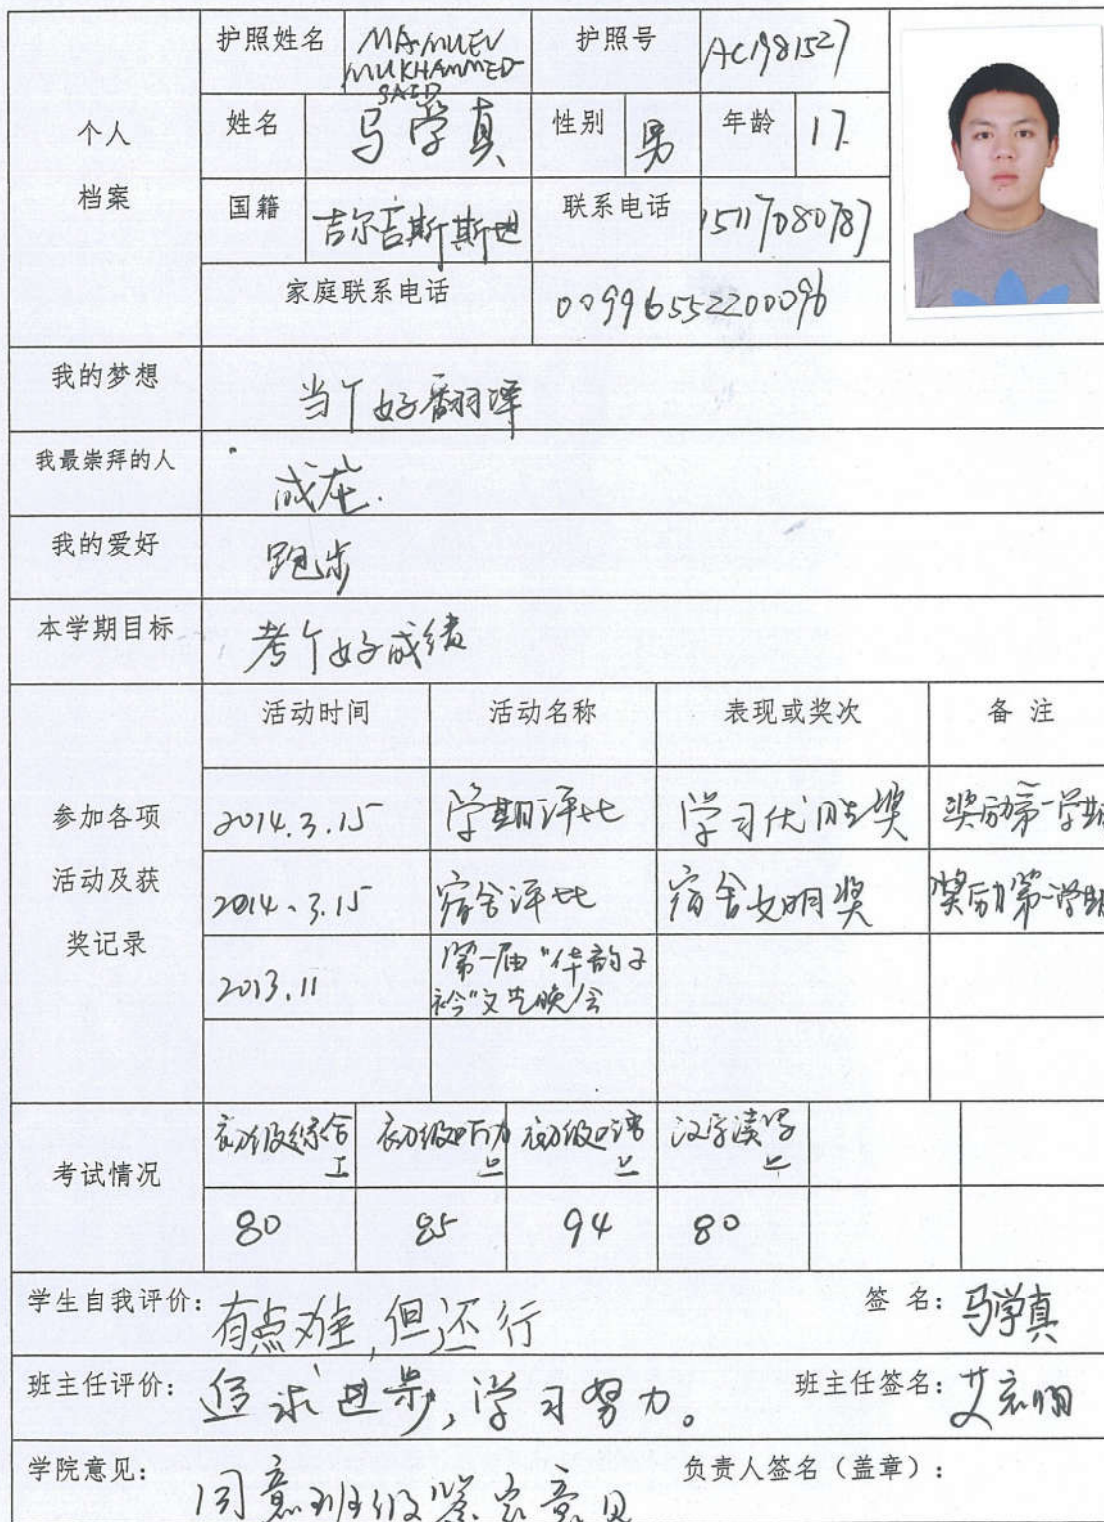 护照姓名 MAMUEV MUKHAMMED-SAID 护照号 AC1981527
个人档案 姓名 马学真 性别 男 年龄 17.
国籍 吉尔吉斯斯坦 联系电话 15117080787
家庭联系电话 00996552200096
我的梦想 当个好翻译
我最崇拜的人 成龙.
我的爱好 跑步
本学期目标 考个好成绩
活动时间 活动名称 表现或奖次 备注
参加各项活动及获奖记录
2014.3.15 学期评比 学习优胜奖 奖励第一学期
2014.3.15 宿舍评比 宿舍文明奖 奖励第一学期
2013.11 第一届“华韵子衿”文艺晚会
考试情况 初级综合 初级听力 初级口语 汉字读写
80 85 94 80
学生自我评价: 有点难,但还行 签名: 马学真
班主任评价: 追求进步,学习努力。 班主任签名:
学院意见: 同意班级鉴定意见 负责人签名(盖章):